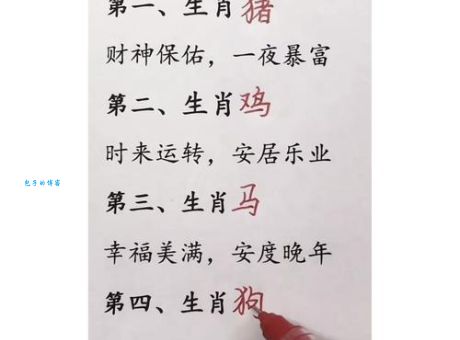 第一、生肖猪
财神保佑，一夜暴富
第二、生肖鸡
时来运转，安居乐业
第三、生肖马
包子的博客
幸福美满，安度晚年
第四、生肖狗